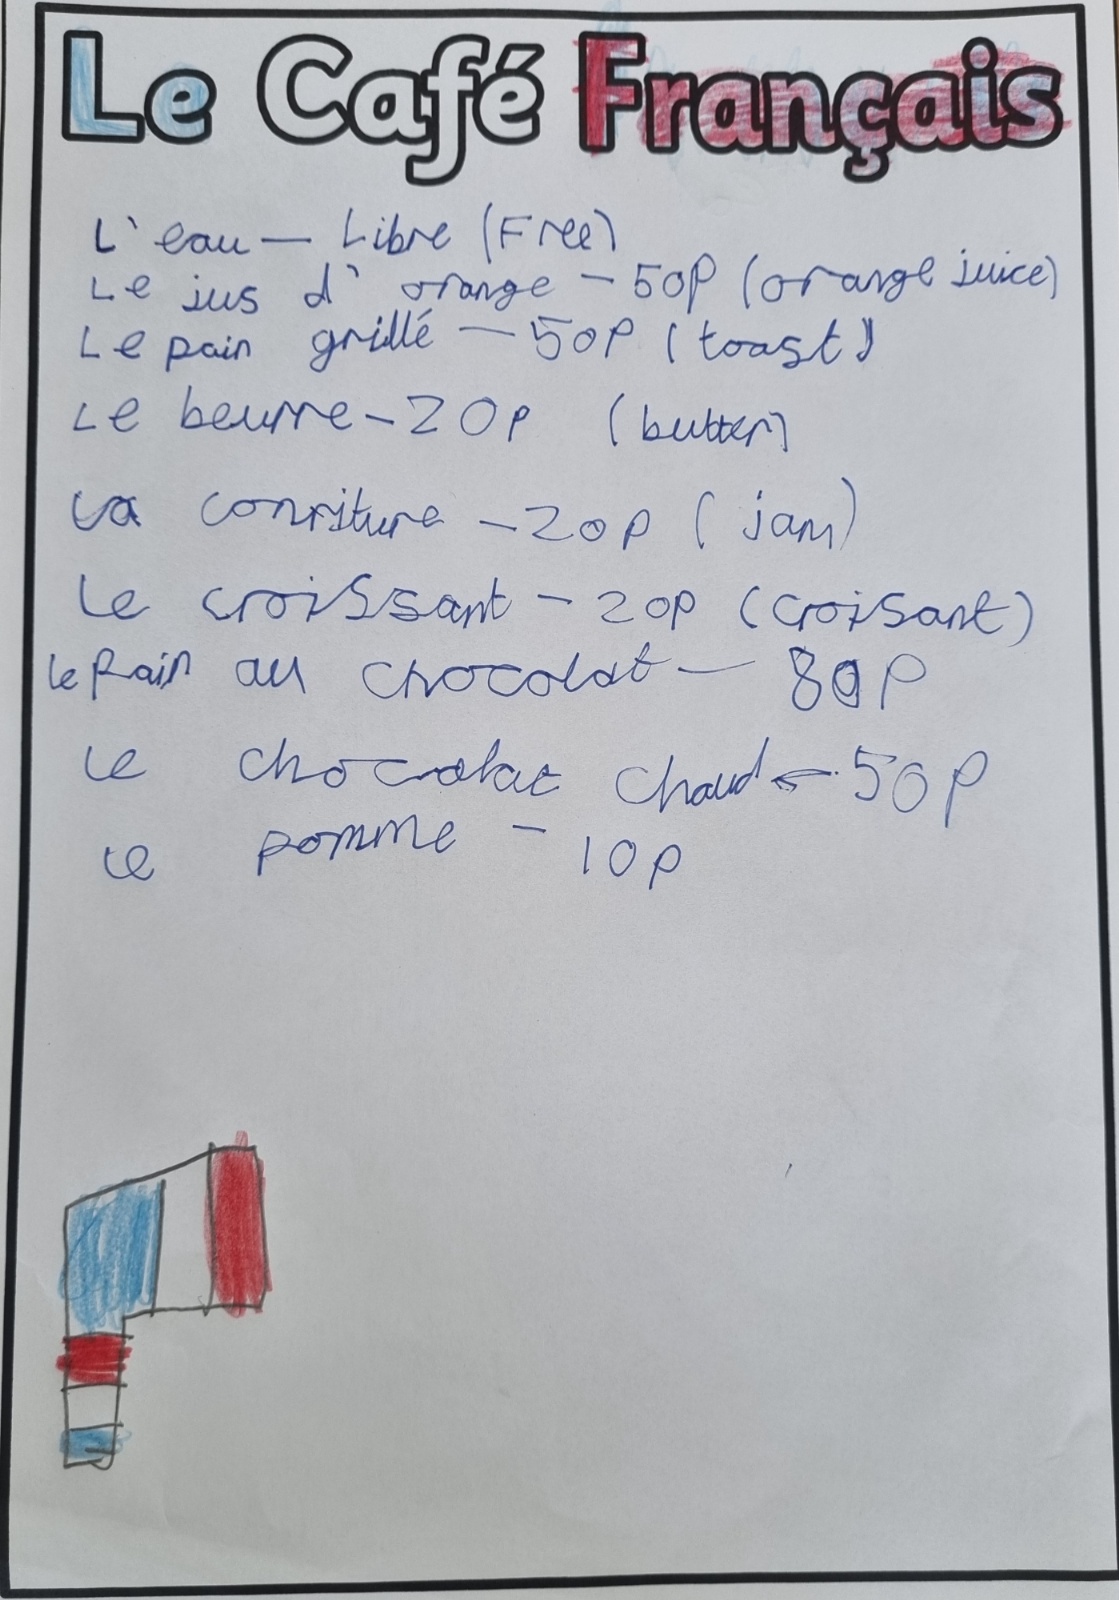 Le Café Français
L'eau — Libre (Free)
Le jus d'orange - 50p (orange juice)
Le pain grillé — 50p (toast)
Le beurre - 20p (butter)
La confiture - 20p (jam)
Le croissant - 20p (croisant)
le Pain au chocolat — 80p
Le chocolat chaud - 50p
Le pomme - 10p